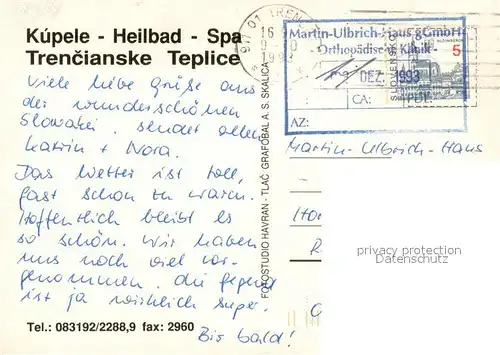 Kúpele - Heilbad - Spa
Trenčianske Teplice
Viele liebe Grüße aus
der wunderschönen
Slowakei sendet allen
Katrin + Nora.
Das Wetter ist toll,
fast schon zu warm.
Hoffentlich bleibt es
so schön. Wir haben
uns noch viel vor-
genommen. Die Gegend
ist ja wirklich super.
Bis bald!
Tel.: 083192/2288,9 fax: 2960
FOTOSTUDIO HAVRAN - TLAČ GRAFOBAL A. S. SKALICA
Martin-Ulbrich-Haus gGmbH
- Orthopädische Klinik -
DEZ. 1993
CA:
PDL:
AZ:
5
Martin-Ulbrich-Haus
privacy protection